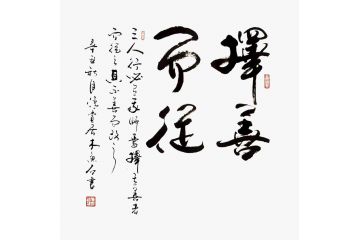 擇善
而從
三人行必有我師焉擇其善者
而從之其不善而改之
辛丑秋月居木魚石書